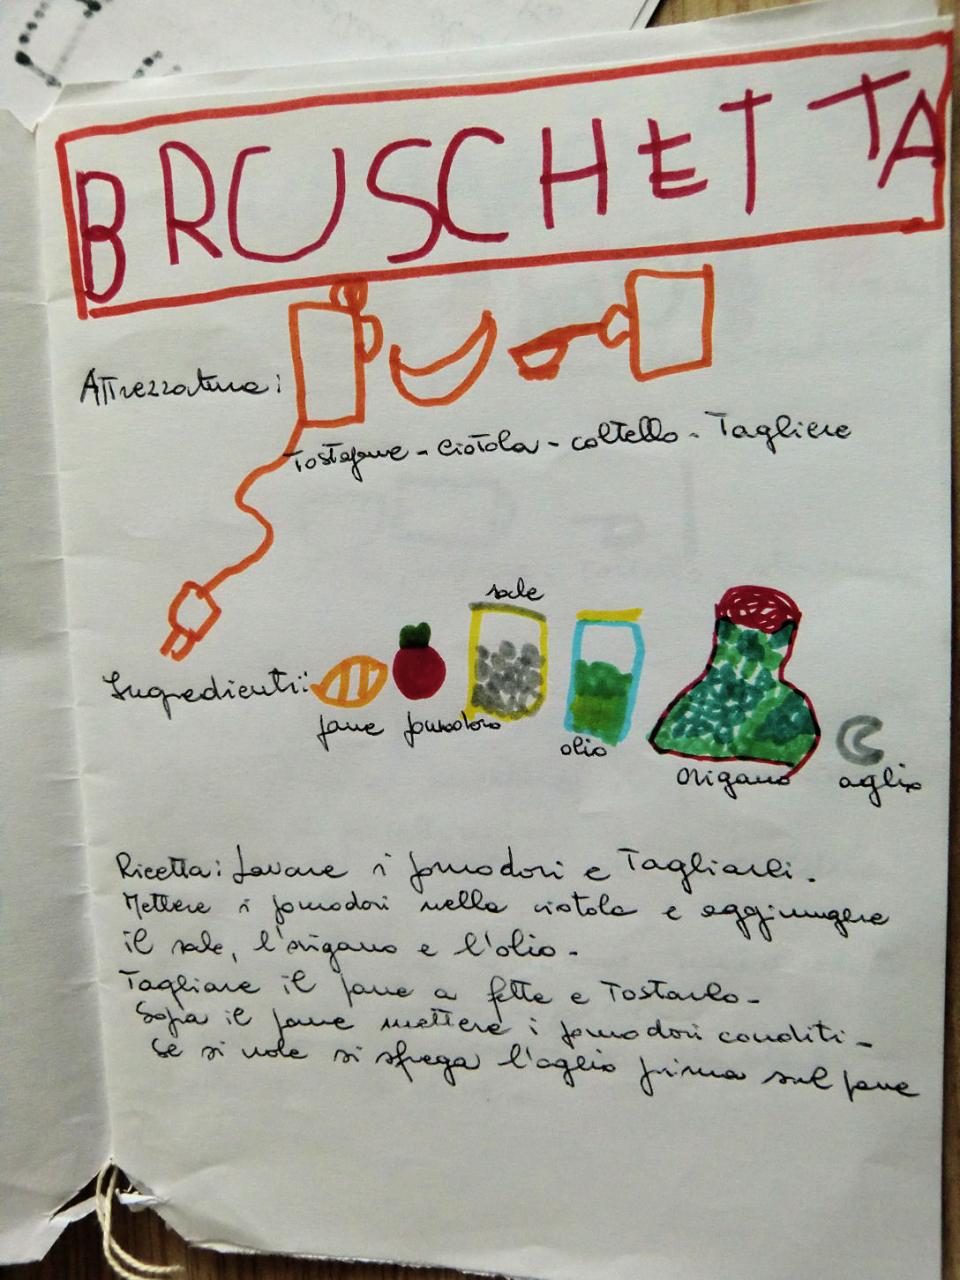 BRUSCHETTA
Attrezzatura:
Tostapane - ciotola - coltello - Tagliere
sale
Ingredienti:
pane pomodoro
olio
origano
aglio
Ricetta: Lavare i pomodori e Tagliarli.
Mettere i pomodori nella ciotola e aggiungere
il sale, l'origano e l'olio.
Tagliare il pane a fette e Tostarlo.
Sopra il pane mettere i pomodori conditi.
Se si vole si sfrega l'aglio prima sul pane